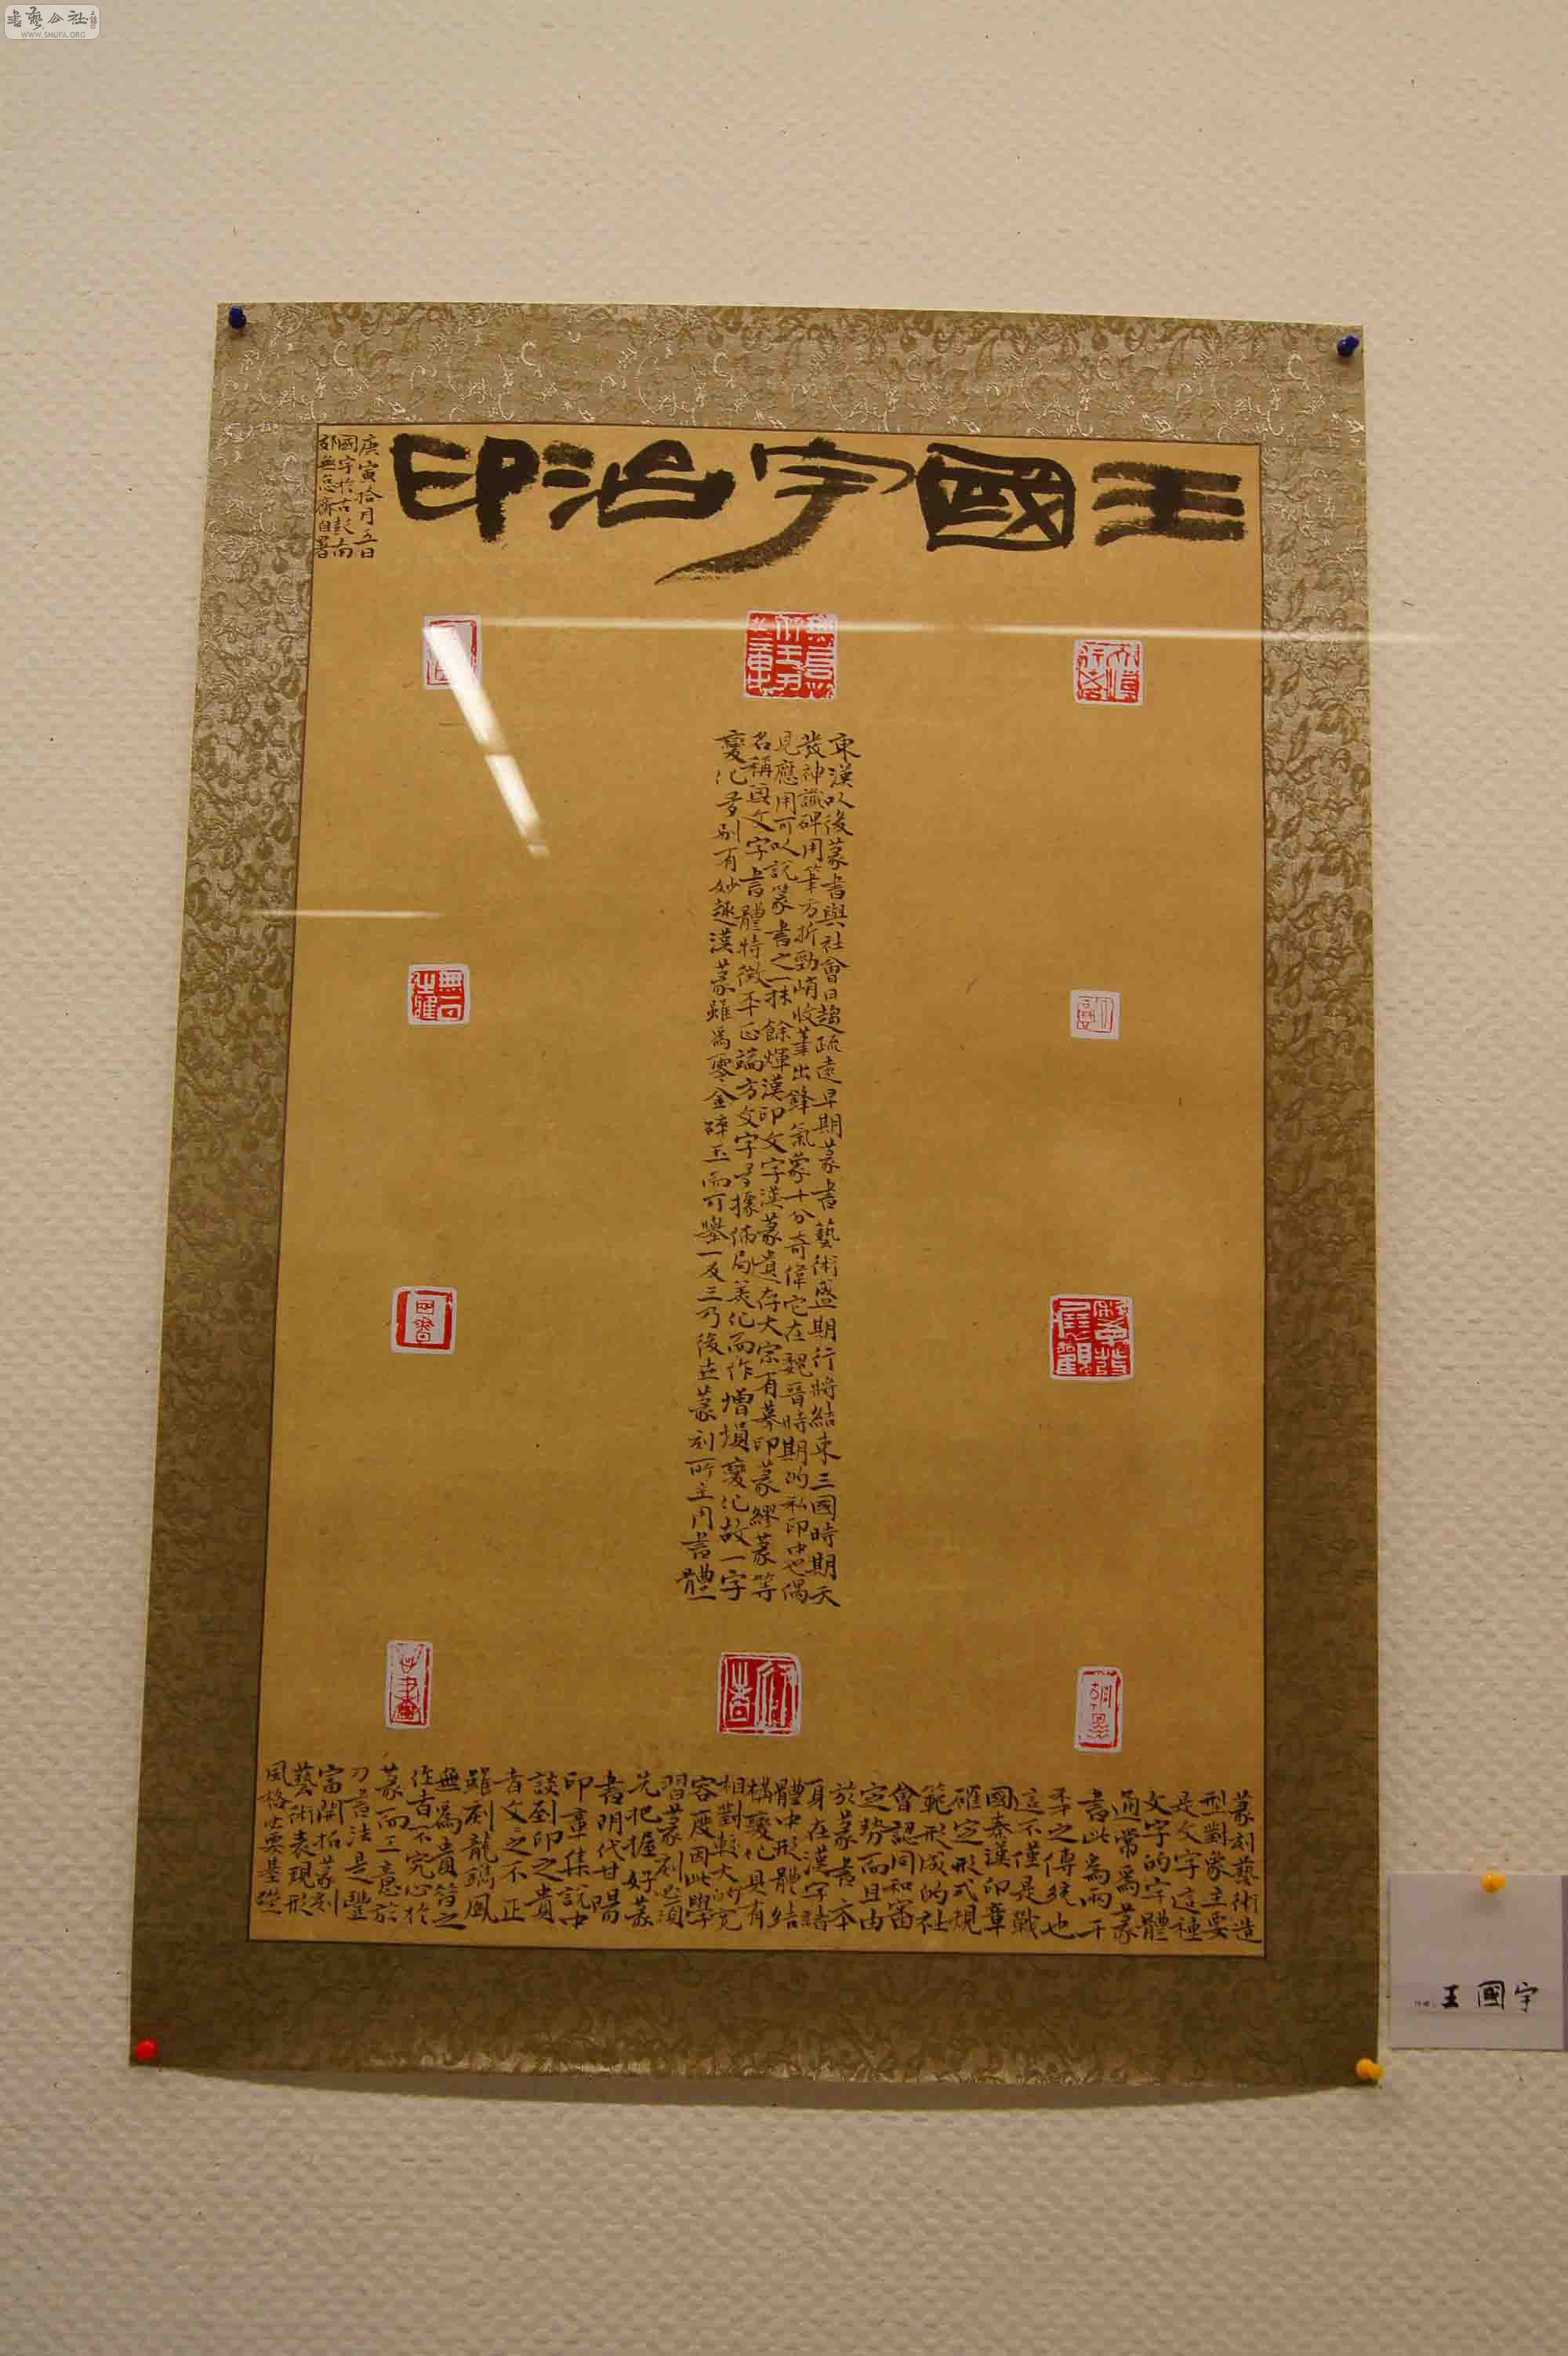 書藝公社
WWW.SHUFA.ORG
王國宇治印
庚寅拾月五日
國宇於古彭南
郊無怠齋自署
東漢以後篆書與社會日趨疏遠早期篆書藝術盛期行將結束三國時期天
發神讖碑用筆方折勁峭收筆出鋒氣蒙十分奇偉它在魏晉時期的私印中也偶
見應用可以說篆書之一抹餘煇漢印文字漢篆遺存大宗有摹印篆繆篆等
名稱與文字書體特徵平正端方文字考據佈局美化而作增損變化故一字
變化多別有妙趣漢篆雖為零金碎玉而可舉一反三乃後世篆刻所主用書體
篆刻藝術造
型對象主要
是文字這種
文字的字體
通常為篆
書此為兩千
年之傳統也
這不僅是戰
國秦漢印章
確定形式規
範形成的社
會認同和審
定勢而且由
於篆書本
身在漢字諸
體中形體結
構變化具有
相對較大的寬
容度因此學
習篆刻必須
先把握好篆
書明代甘暘
印章集說中
談到印之貴
者文之不正
雖刻龍鐫鳳
無為貴筲之
作者不究心於
篆而工意於
刀書法是豐
富開拓篆刻
藝術表現形
風格必要基礎
王國宇